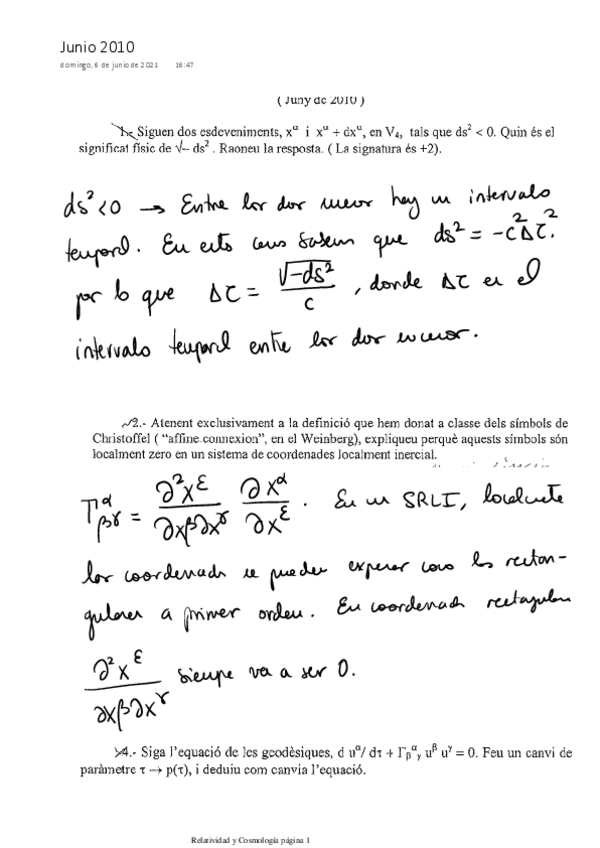 Junio 2010
domingo, 6 de junio de 2021 16:47
( Juny de 2010 )
1.- Siguen dos esdeveniments, x^α i x^α + dx^α, en V₄, tals que ds² < 0. Quin és el
significat físic de √– ds² . Raoneu la resposta. ( La signatura és +2).
ds² < 0 → Entre los dos sucesos hay un intervalo
temporal. En esto caso sabem que ds² = -c²Δτ².
por lo que Δτ = √-ds² / c , donde Δτ es el
intervalo temporal entre los dos sucesos.
2.- Atenent exclusivament a la definició que hem donat a classe dels símbols de
Christoffel ( “affine connexion”, en el Weinberg), expliqueu perquè aquests símbols són
localment zero en un sistema de coordenades localment inercial.
Γ^α_βγ = ∂²x^ε / ∂x^β∂x^γ ∂x^α / ∂x^ε . En un SRLI, localmente
las coordenadas se pueden expresar como las rectan-
gulares a primer orden. En coordenadas rectangulares
∂²x^ε / ∂x^β∂x^γ siempre va a ser 0.
4.- Siga l’equació de les geodèsiques, d u^α/ dτ + Γ_β^α_γ u^β u^γ = 0. Feu un canvi de
paràmetre τ → p(τ), i deduiu com canvia l’equació.
Relatividad y Cosmología página 1